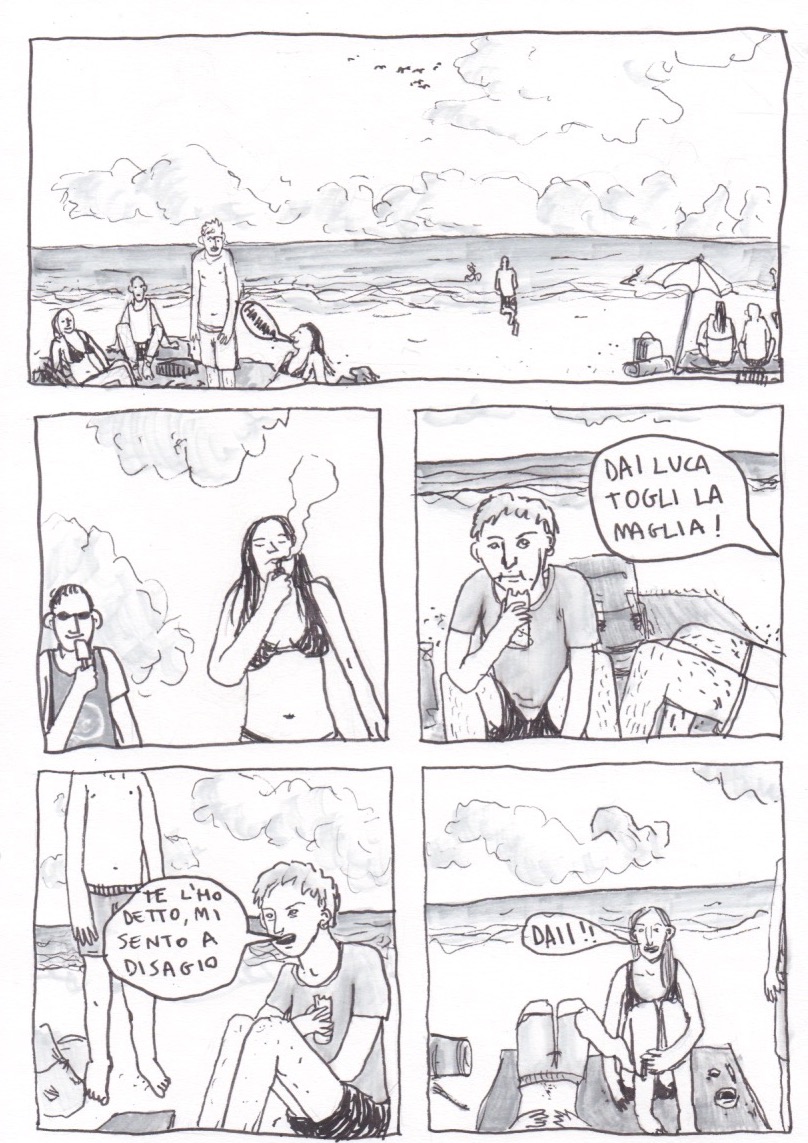 DAI LUCA
TOGLI LA
MAGLIA!
TE L'HO
DETTO, MI
SENTO A
DISAGIO
DAII!!